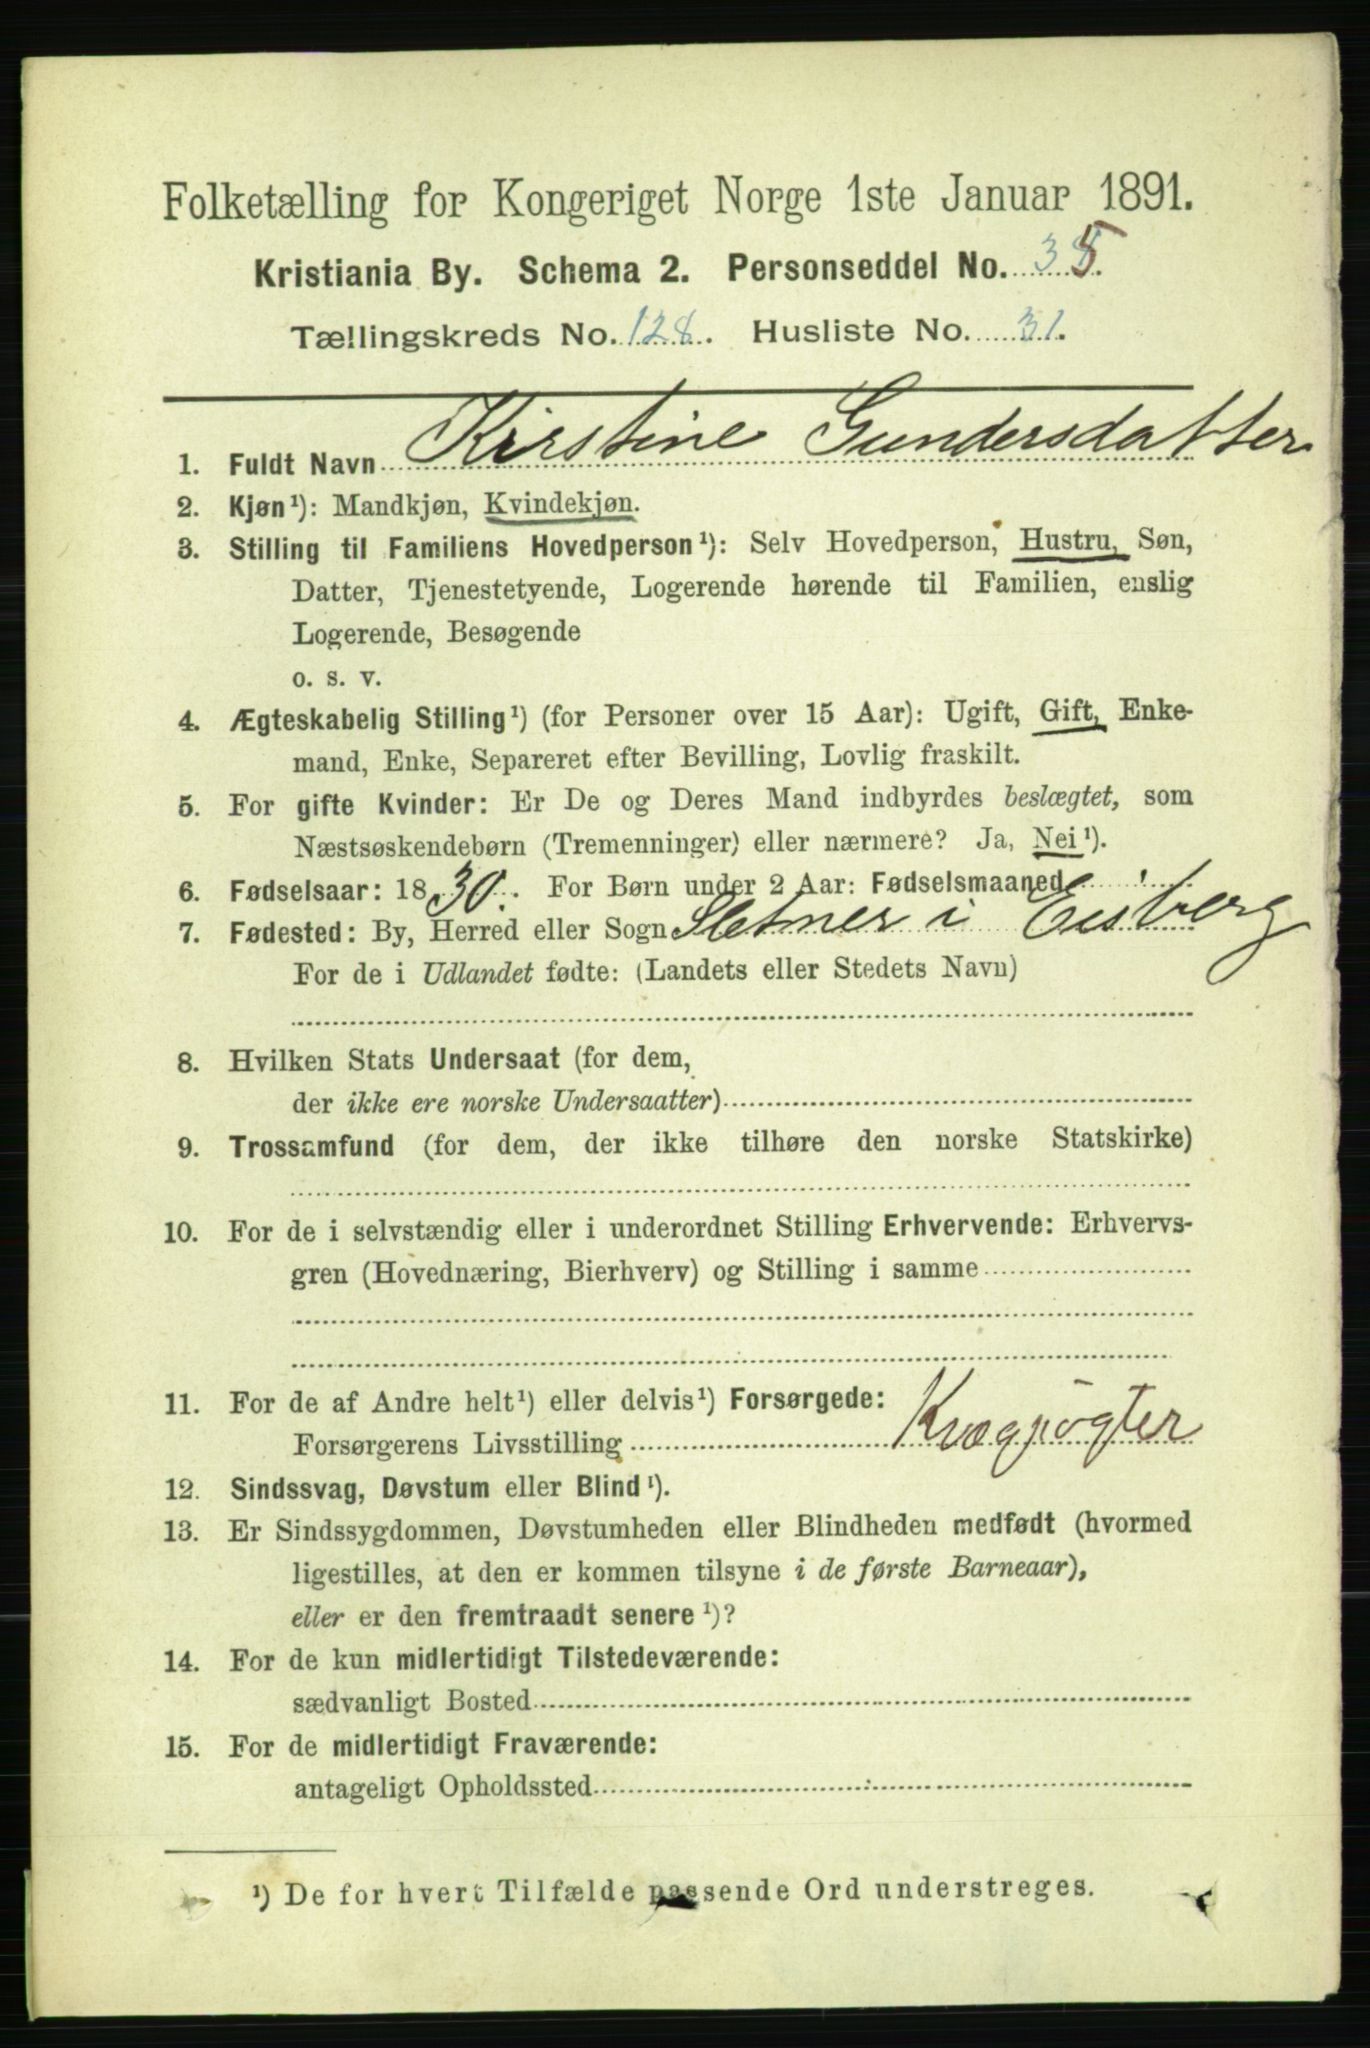 Folketælling for Kongeriget Norge 1ste Januar 1891.
Kristiania By. Schema 2. Personseddel No. 35.
Tællingskreds No. 128. Husliste No. 31.
1. Fuldt Navn Kirstine Gundersdatter
2. Kjøn¹): Mandkjøn, Kvindekjøn.
3. Stilling til Familiens Hovedperson¹): Selv Hovedperson, Hustru, Søn,
Datter, Tjenestetyende, Logerende hørende til Familien, enslig
Logerende, Besøgende
o. s. v.
4. Ægteskabelig Stilling¹) (for Personer over 15 Aar): Ugift, Gift, Enke-
mand, Enke, Separeret efter Bevilling, Lovlig fraskilt.
5. For gifte Kvinder: Er De og Deres Mand indbyrdes beslægtet, som
Næstsøskendebørn (Tremenninger) eller nærmere? Ja, Nei¹).
6. Fødselsaar: 1830. For Børn under 2 Aar: Fødselsmaaned
7. Fødested: By, Herred eller Sogn Sletner i Eisberg
For de i Udlandet fødte: (Landets eller Stedets Navn)
8. Hvilken Stats Undersaat (for dem,
der ikke ere norske Undersaatter)
9. Trossamfund (for dem, der ikke tilhøre den norske Statskirke)
10. For de i selvstændig eller i underordnet Stilling Erhvervende: Erhvervs-
gren (Hovednæring, Bierhverv) og Stilling i samme
11. For de af Andre helt¹) eller delvis¹) Forsørgede:
Forsørgerens Livsstilling Kvægrøgter
12. Sindssvag, Døvstum eller Blind¹).
13. Er Sindssygdommen, Døvstumheden eller Blindheden medfødt (hvormed
ligestilles, at den er kommen tilsyne i de første Barneaar),
eller er den fremtraadt senere¹)?
14. For de kun midlertidigt Tilstedeværende:
sædvanligt Bosted
15. For de midlertidigt Fraværende:
antageligt Opholdssted
¹) De for hvert Tilfælde passende Ord understreges.